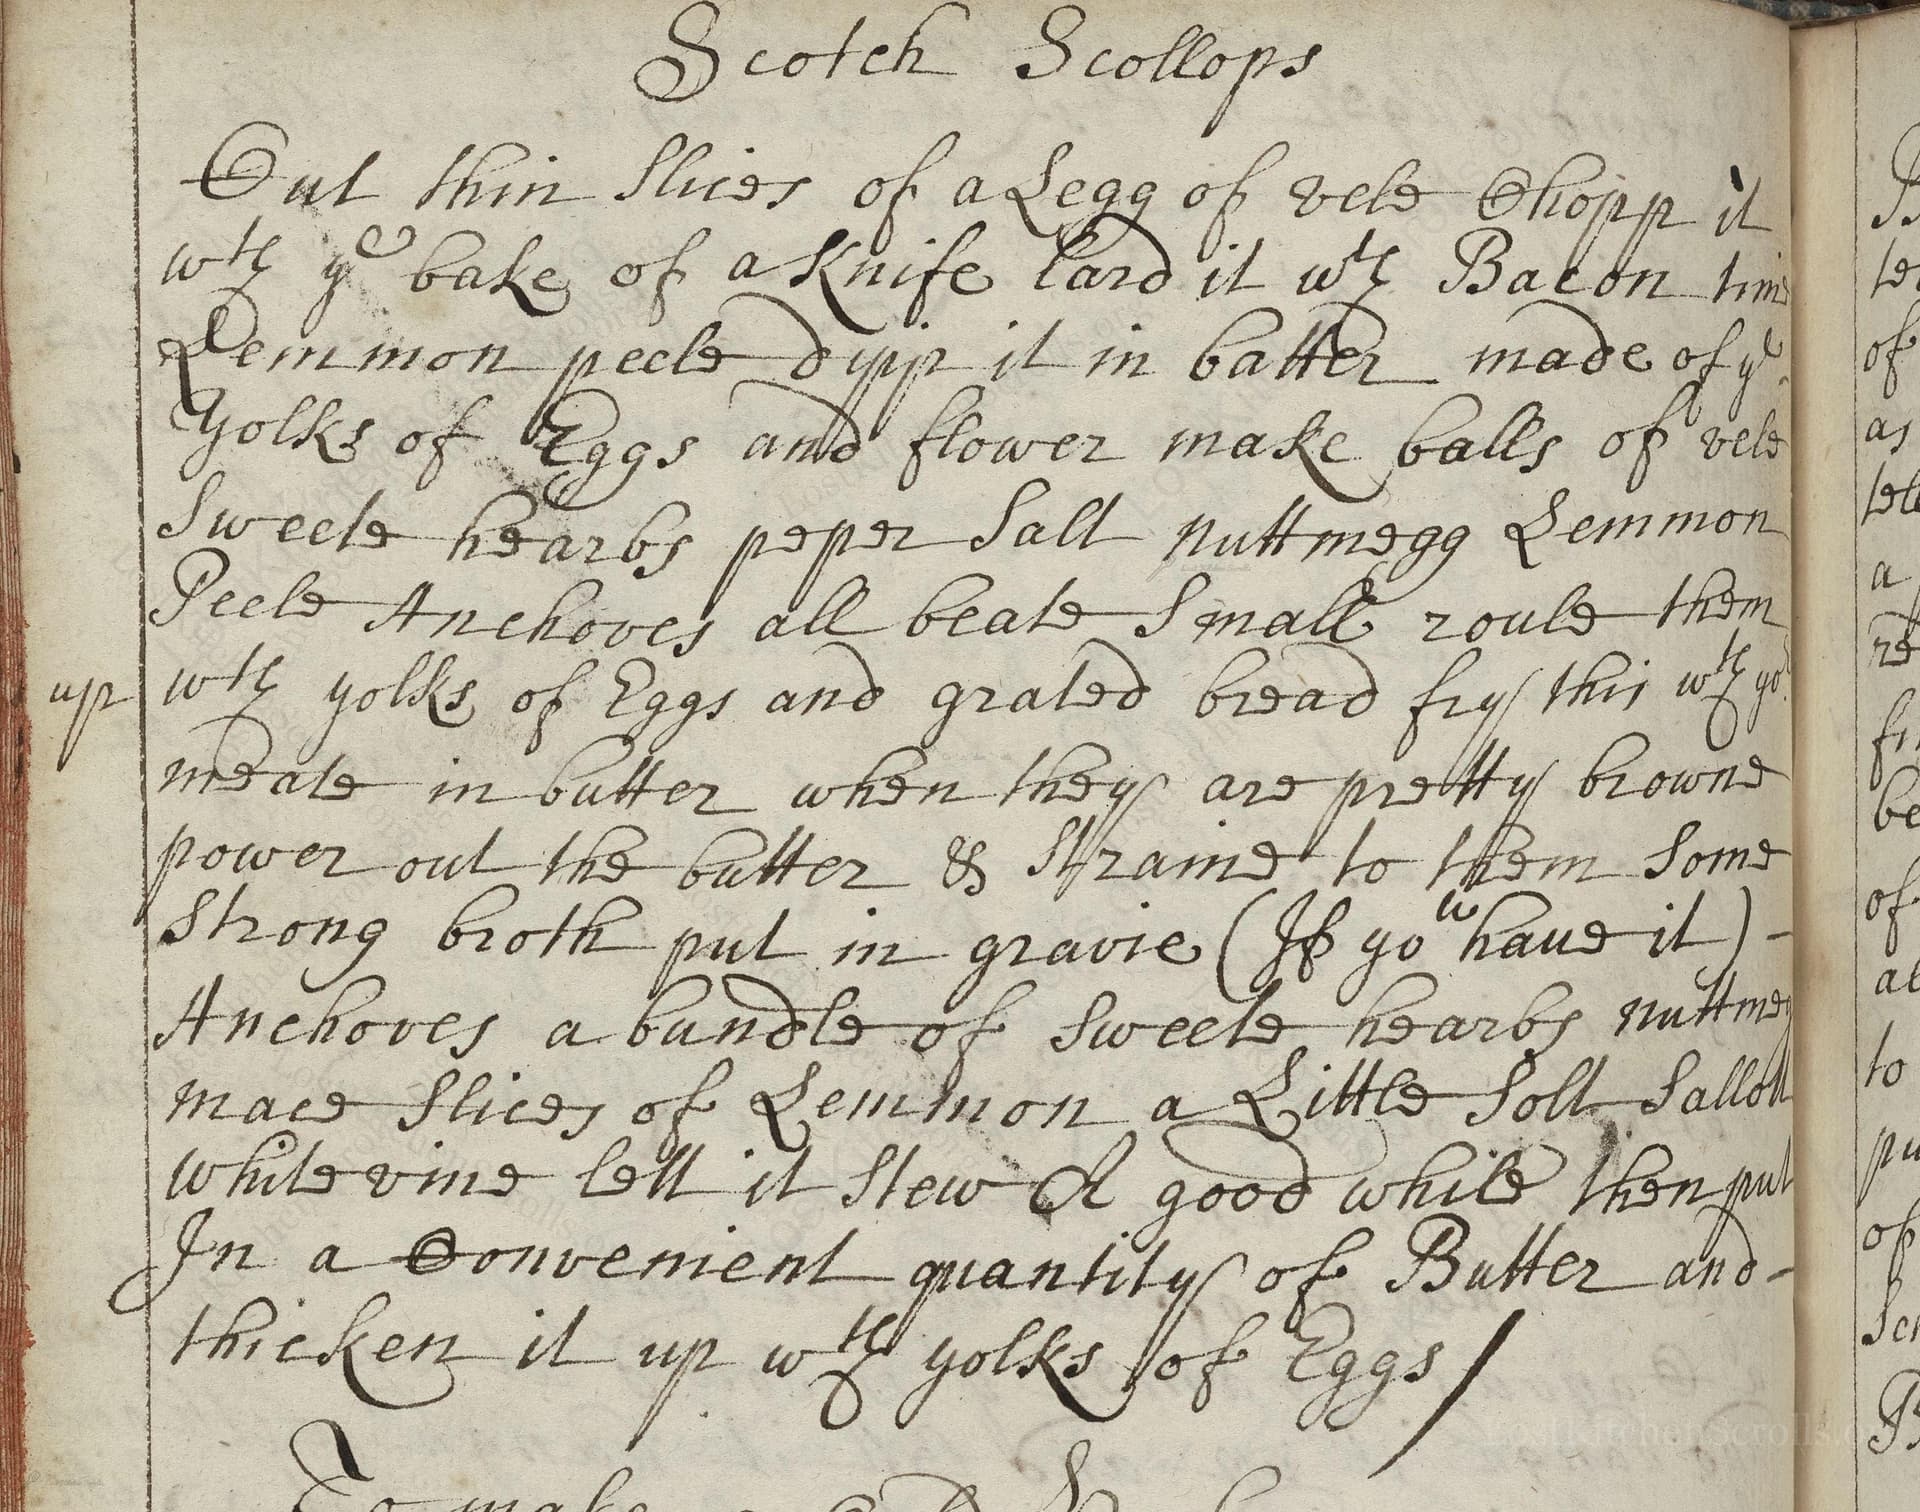 Scotch Scollops
Cut thin slices of a Legg of vele Chopp it
wth ye bake of a Knife Lard it wth Bacon time
Lemmon peele dipp it in batter made of ye
Yolks of Eggs and flower make balls of vele
Sweete hearbs peper Salt nuttmegg Lemmon
Peele Anchoves all beate Small roule them
up wth yolks of Eggs and grated bread fry this wth yor
meate in butter when they are pretty browne
power out the butter & straine to them Some
Strong broth put in gravie (If you have it) -
Anchoves a bundle of Sweete hearbs nuttmeg
mace Slices of Lemmon a Little Solt Sallott
white vine lett it Stew A good while then put
In a Convenient quantity of Butter and -
thicken it up wth yolks of Eggs /
To make